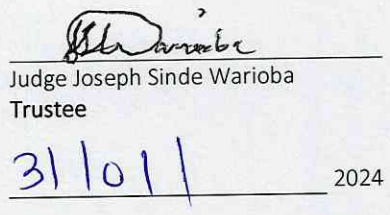 Judge Joseph Sinde Warioba
Trustee
31/01/ 2024